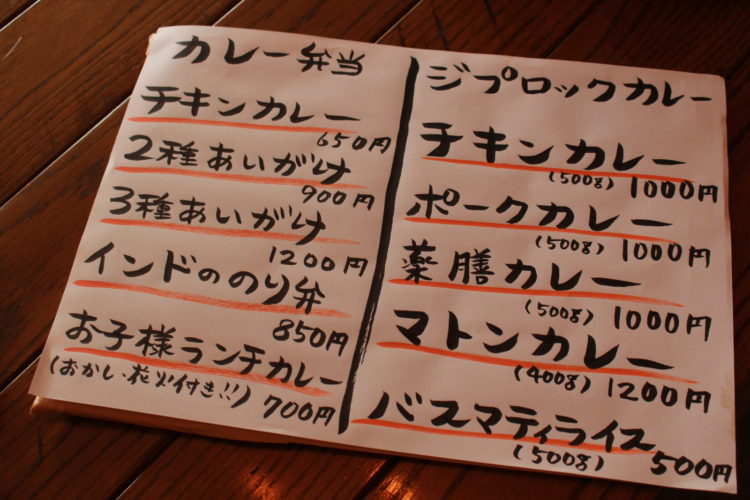 カレー弁当
チキンカレー
650円
2種あいがけ
900円
3種あいがけ
1200円
インドののり弁
850円
お子様ランチカレー
(おかし、花火付き!!) 700円
ジプロックカレー
チキンカレー
(500g) 1000円
ポークカレー
(500g) 1000円
薬膳カレー
(500g) 1000円
マトンカレー
(400g) 1200円
バスマティライス
(500g) 500円